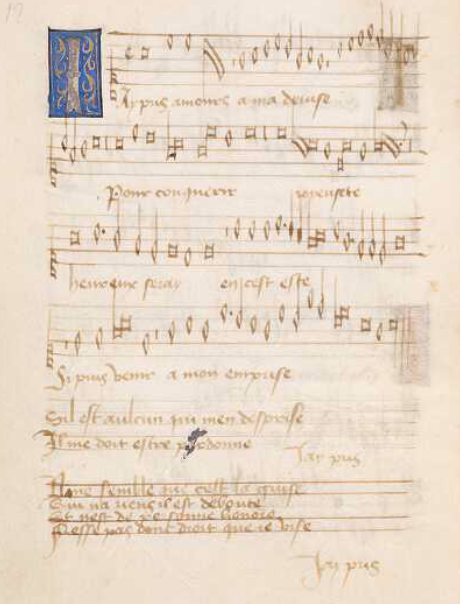 Jay pris amours a ma devise
Pour conquerir joyeusete
heureux seray en cest este
Si puis venir a mon emprise
Sil est aulcun qui men desprise
Il me doit estre pardonne
Jay pris
Il me semble que cest la guise
Qui na riens il est deboute
Et nest de
honore
Nesse pas dont droit que ie vise
Jay pris